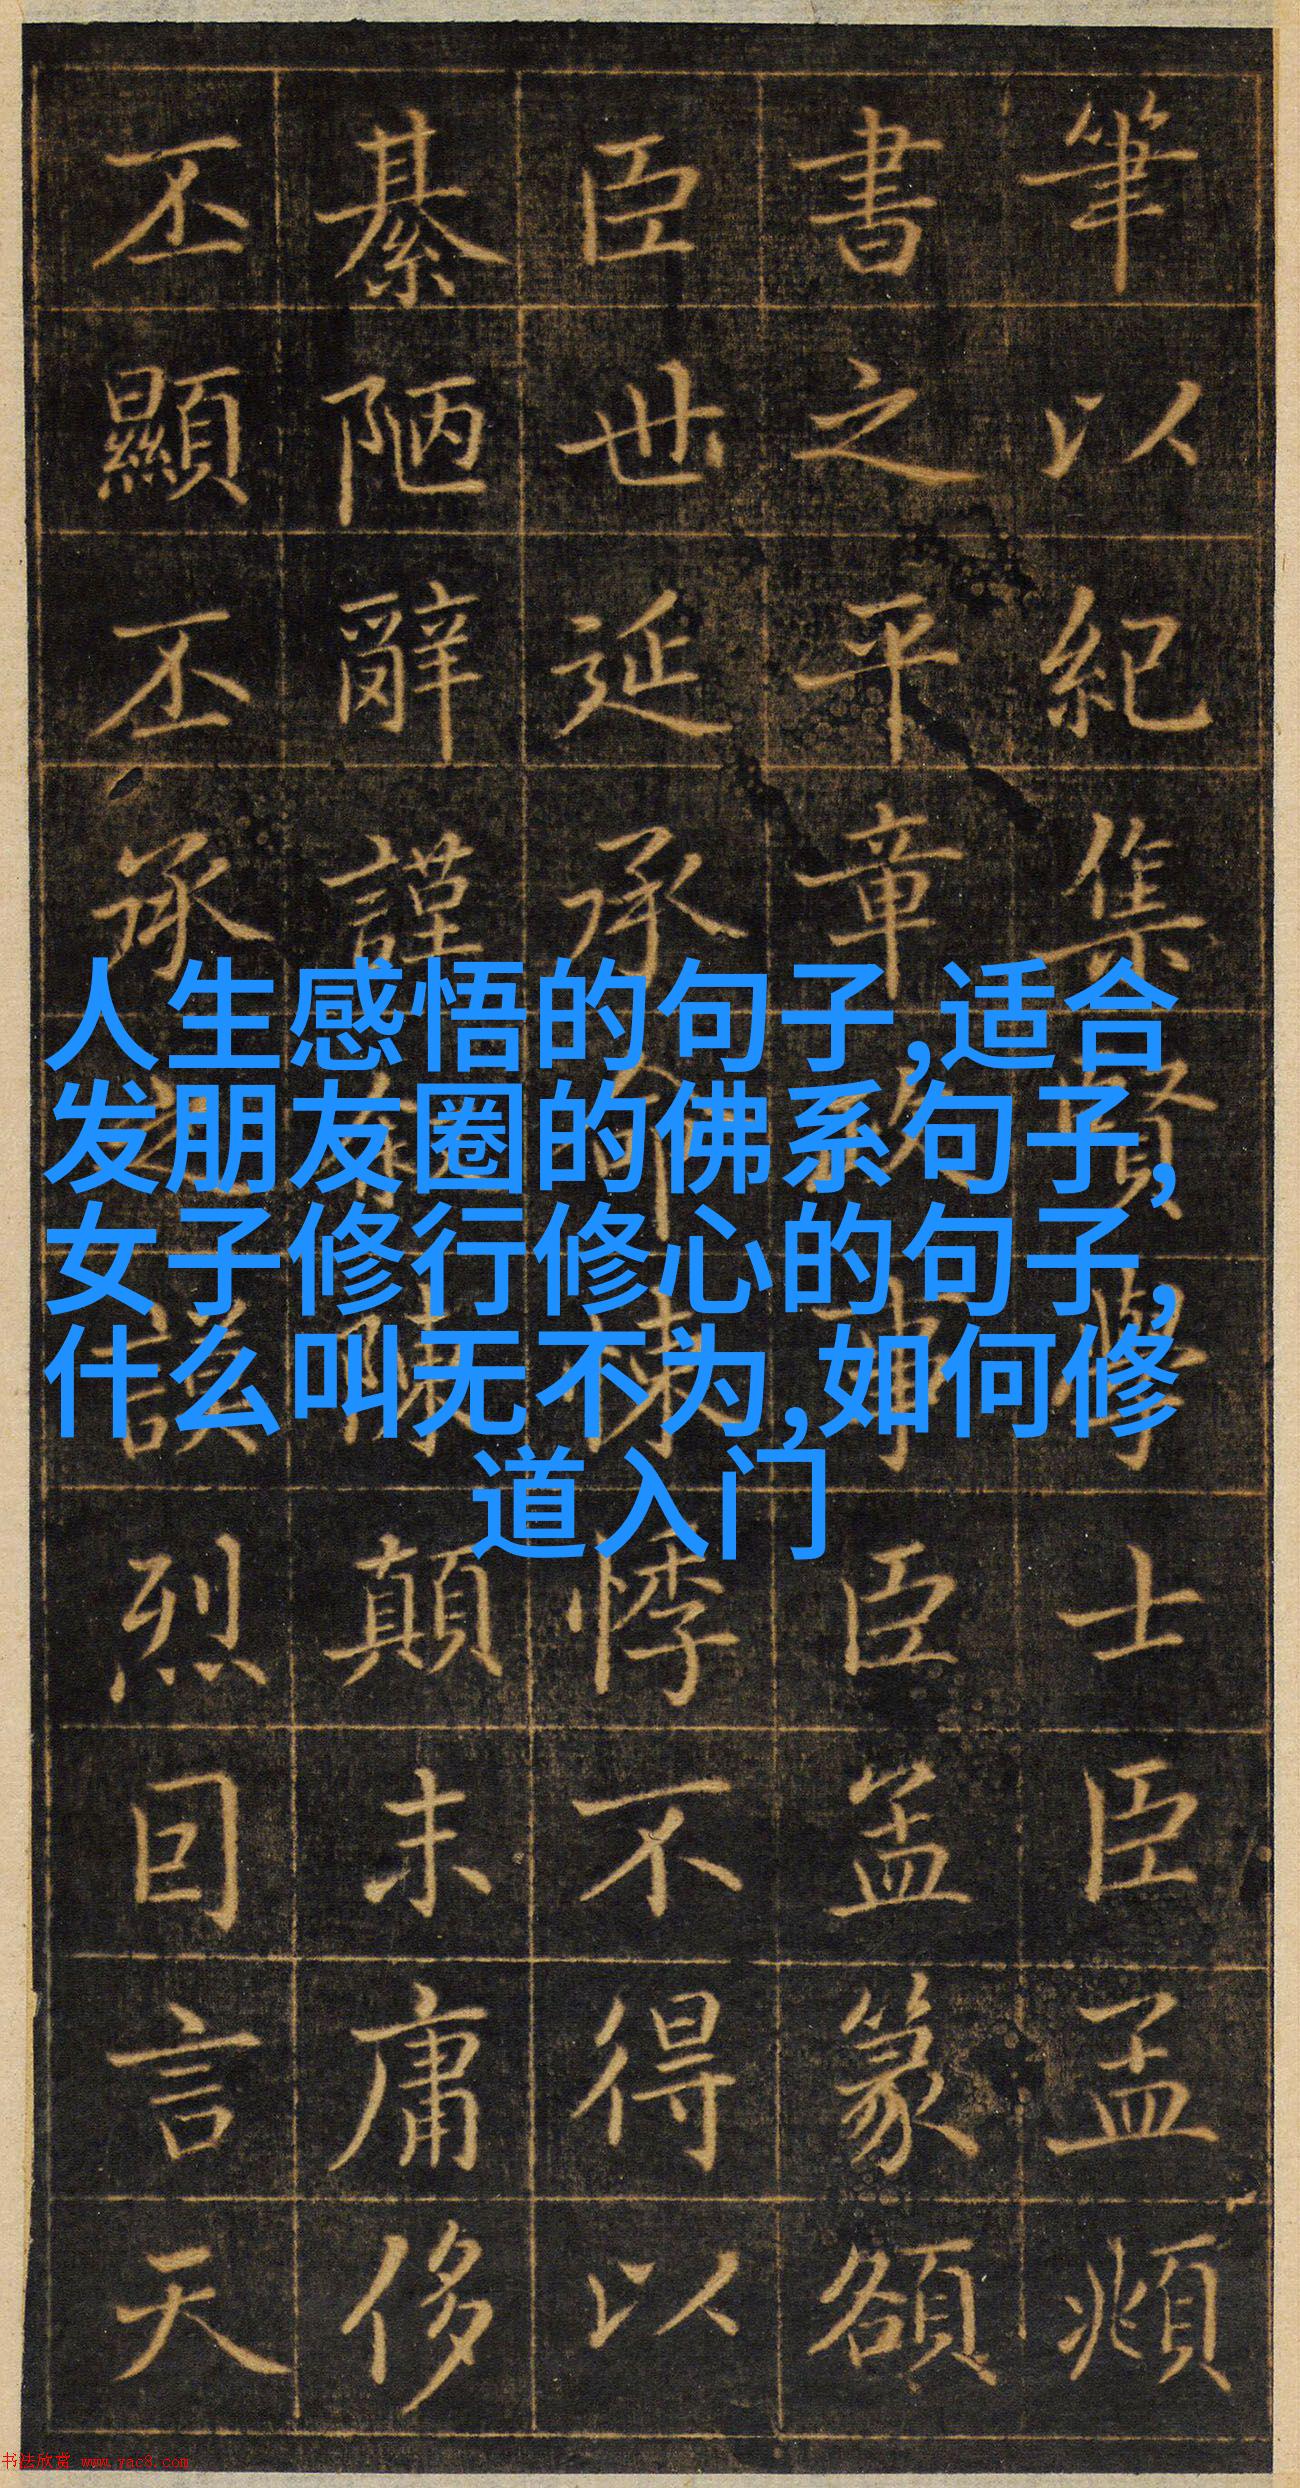 筆以紀集賢學士臣孟頫
書之平章政事臣篆額
臣世延承命悚悸不得以
綦陋辭謹陳顛末庸侈
丕顯丕承之謨烈囙言天
人生感悟的句子,适合
发朋友圈的佛系句子,
女子修行修心的句子,
什么叫无不为,如何修
道入门
书法欣赏 www.yac8.com